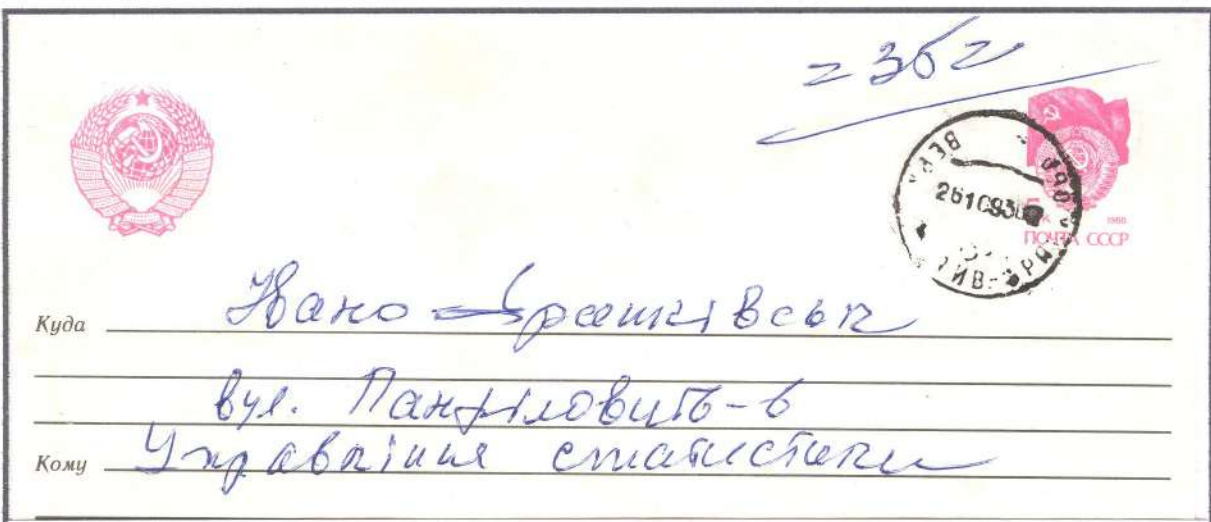 =36=
1988
5 к
ПОЧТА СССР
Куда Івано-Франківськ
вул. Панфіловців-6
Кому Управління статистики